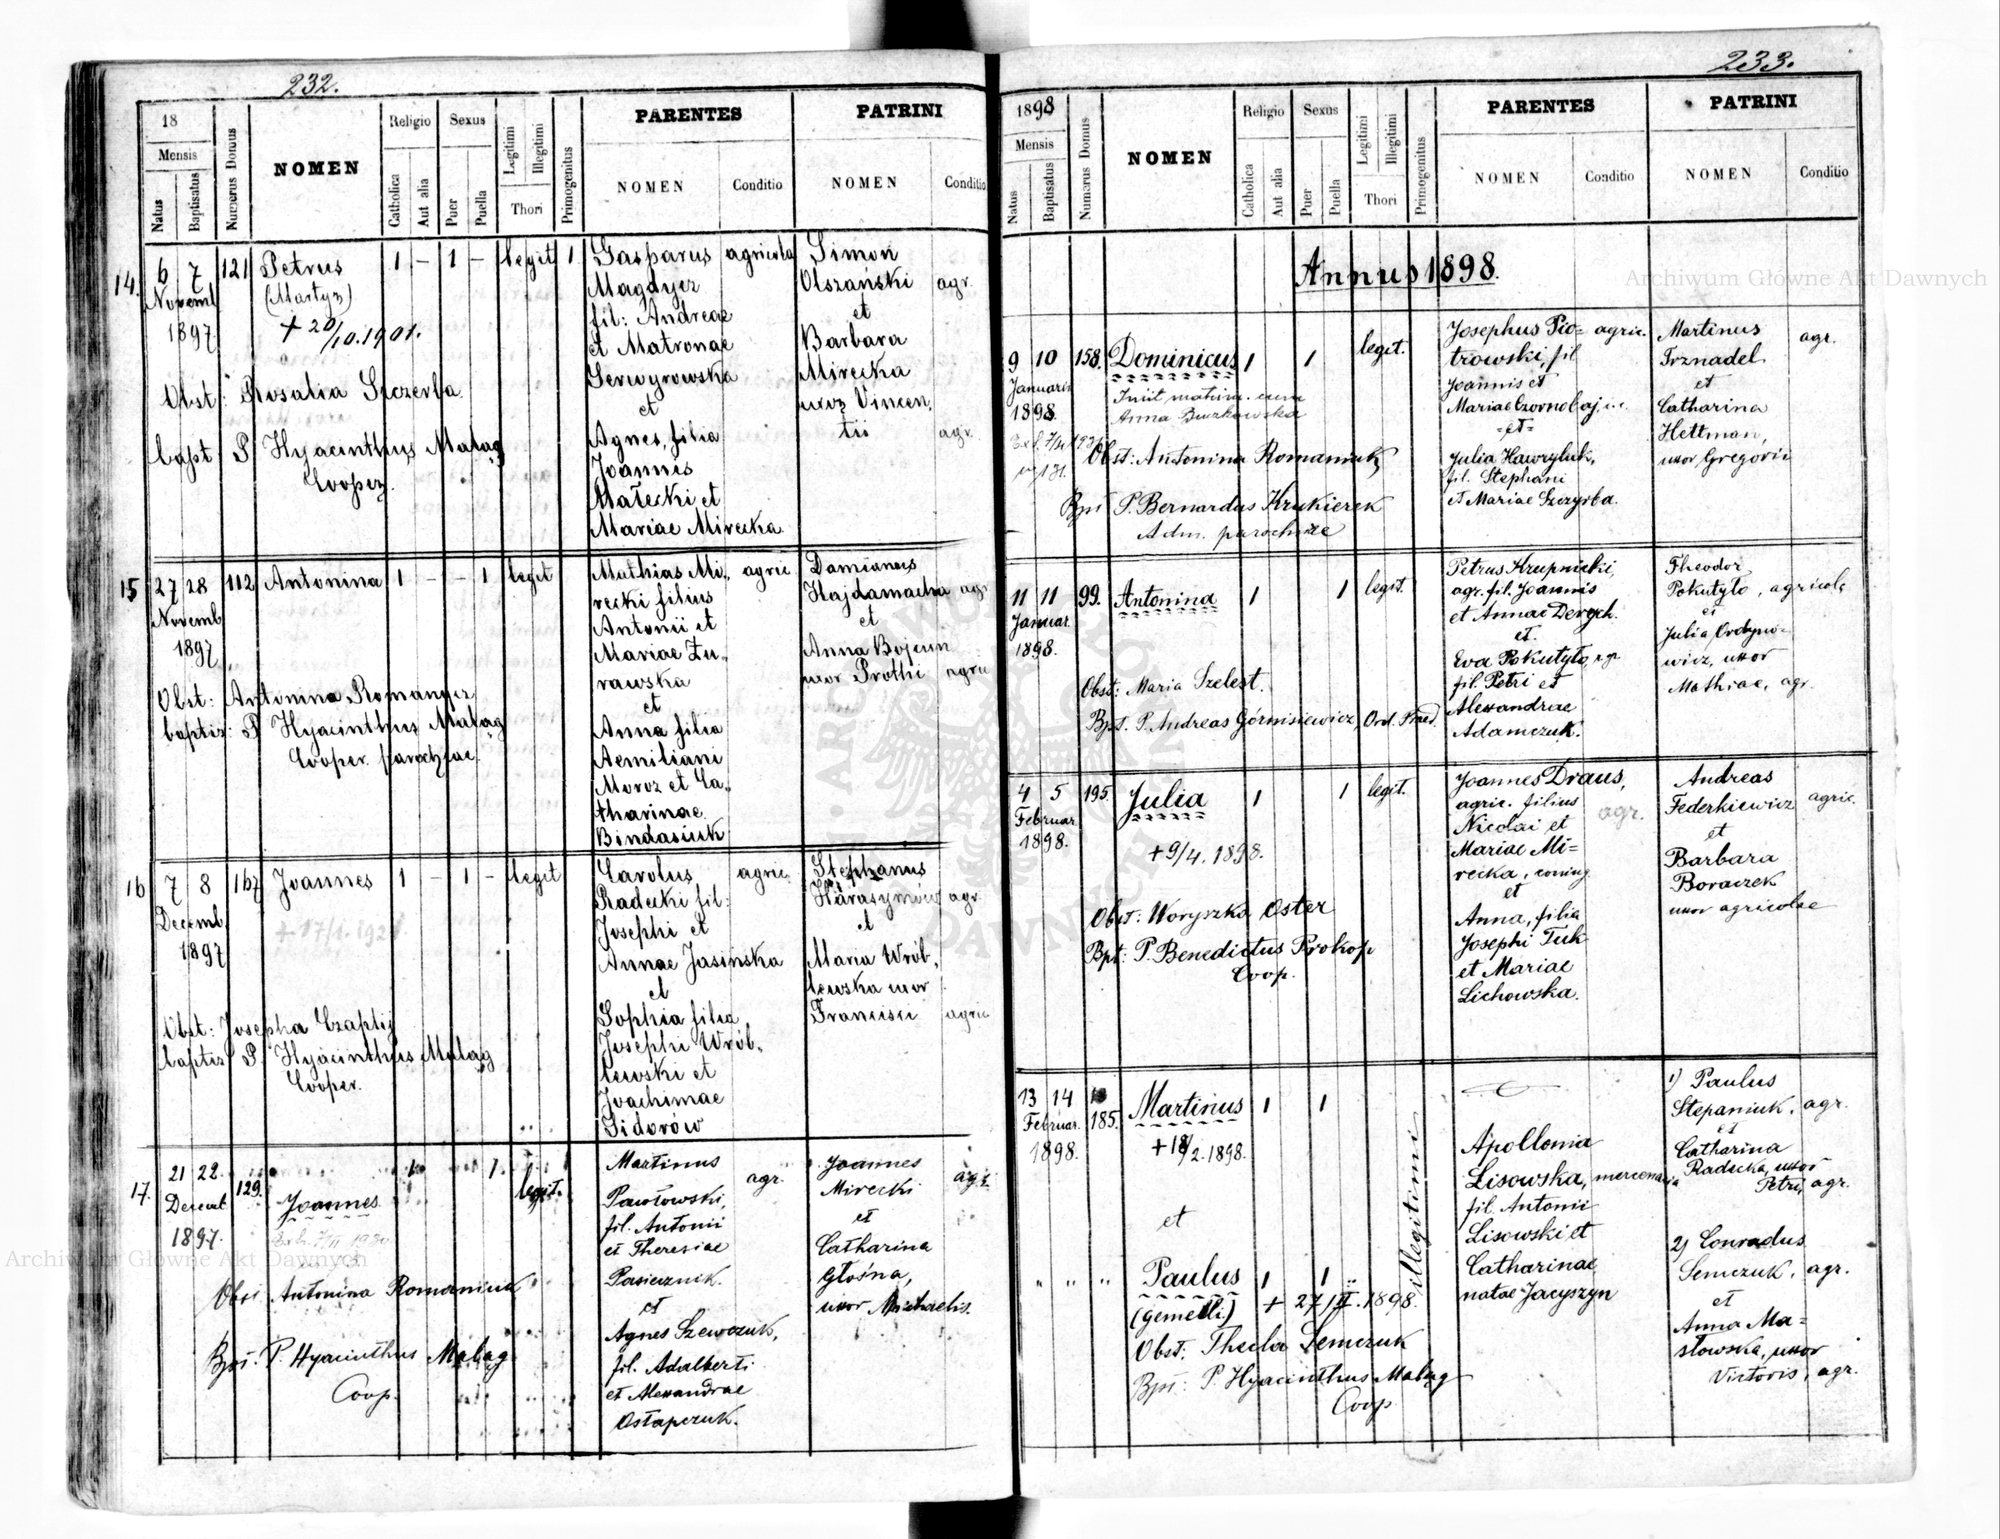 232.
18
Mensis
Natus
Baptisatus
Numerus Domus
NOMEN
Religio
Catholica
Aut alia
Sexus
Puer
Puella
Legitimi
Illegitimi
Thori
Primogenitus
PARENTES
NOMEN
Conditio
PATRINI
NOMEN
Conditio
14. 6 7 121 Petrus 1 – 1 – legit 1
Novemb
1897
(Martyr)
+ 20/10.1901.
Obst: Rosalia Szczerba
bapt P Hyacinthus Malag
Cooper.
Gasparus agricola
Magdyez
fil: Andreae
et Matronae
Serwyrowska
et
Agnes, filia
Joannis
Małecki et
Mariae Mirecka
Simon
Olszański agr.
et
Barbara
Mirecka
uxor Vincen,
tii agr.
15 27 28 112 Antonina 1 – – 1 legit
Novemb
1897
Obst: Antonina Romaniuk
baptiz: P Hyacinthus Malag
Cooper. parochiae
Mathias Mi, agric
recki filius
Antonii et
Mariae Żu,
rawska
et
Anna filia
Aemiliani
Moroz et Ca,
tharinae
Bindasiuk
Damianus
Hajdamacha agr
et
Anna Bojcun
uxor Prothi agric
16 7 8 167 Joannes 1 – 1 – legit
Decemb.
1897
+ 17/1.192
Obst: Josepha Czaplij
baptiz P. Hyacinthus Malag
Cooper.
Carolus agric.
Radecki fil:
Josephi et
Annae Jasińska
et
Sophia filia
Josephi Wrób,
lewski et
Joachimae
Sidorów
Stephanus
Harasymów agr
et
Maria Wrób,
lewska uxor
Francisci agric
17. 21 22 129. Joannes 1 1 legit.
Decemb
1897.
Obst Antonina Romaniuk
Bpt. P. Hyacinthus Malag
Coop.
Martinus agr.
Pawłowski,
fil. Antonii
et Theresiae
Pasiecznik.
et
Agnes Szewczuk,
fil. Adalberti
et Alexandrae
Ostapczuk.
Joannes agr.
Mirecki
et
Catharina
Głośna,
uxor Michaelis.
233.
1898
Mensis
Natus
Baptisatus
Numerus Domus
NOMEN
Religio
Catholica
Aut alia
Sexus
Puer
Puella
Legitimi
Illegitimi
Thori
Primogenitus
PARENTES
NOMEN
Conditio
PATRINI
NOMEN
Conditio
Annus 1898.
9 10 158. Dominicus 1 1 legit.
Januarii
1898.
Iniit matrim. cum
Anna Buczkowska
Obst: Antonina Romaniuk
Bpt P. Bernardus Krukierek
Adm. parochiae
Josephus Pio= agric.
trowski, fil
Joannis et
Mariae Czornobaj,
=et=
Julia Hawryluk,
fil. Stephani
et Mariae Szczyrba.
Martinus agr.
Trznadel
et
Catharina
Hettman,
uxor Gregorii
11 11 99. Antonina 1 1 legit.
Januar.
1898.
Obst: Maria Szelest.
Bpt. P. Andreas Górnisiewicz, Ord. Praed.
Petrus Krupnicki,
agr. fil. Joannis
et Annae Dergch.
et.
Eva Pokutyło, agr.
fil. Petri et
Alexandrae
Adamczuk.
Theodor
Pokutyło, agricola
et
Julia Ordyno=
wicz, uxor
Mathiae, agr.
4 5 195. Julia 1 1 legit.
Februar.
1898.
+9/4.1898.
Obst: Woryszka Oster
Bpt: P. Benedictus Prokop
Coop.
Joannes Draus,
agric. filius agr.
Nicolai et
Mariae Mi=
recka, coniug
et
Anna, filia
Josephi Tuk
et Mariae
Lichowska.
Andreas
Federkiewicz agric.
et
Barbara
Boraczek
uxor agricolae
13 14 185. Martinus 1 1
Februar.
1898.
+18/2.1898.
et
" " " Paulus 1 1
(gemelli) + 27/II.1898.
Obst: Thecla Semczuk
Bpt: P. Hyacinthus Malag
Coop
illegitimi
Apollonia
Lisowska, mercenaria
fil. Antonii
Lisowski et
Catharinae
natae Jacyszyn
1) Paulus
Stepaniuk, agr.
et
Catharina
Radecka, uxor
Petri, agr.
2) Conradus
Semczuk, agr.
et
Anna Ma=
słowska, uxor
Victoris, agr.
Archiwum Główne Akt Dawnych
Archiwum Główne Akt Dawnych
ARCHIWUM GŁÓWNE AKT DAWNYCH